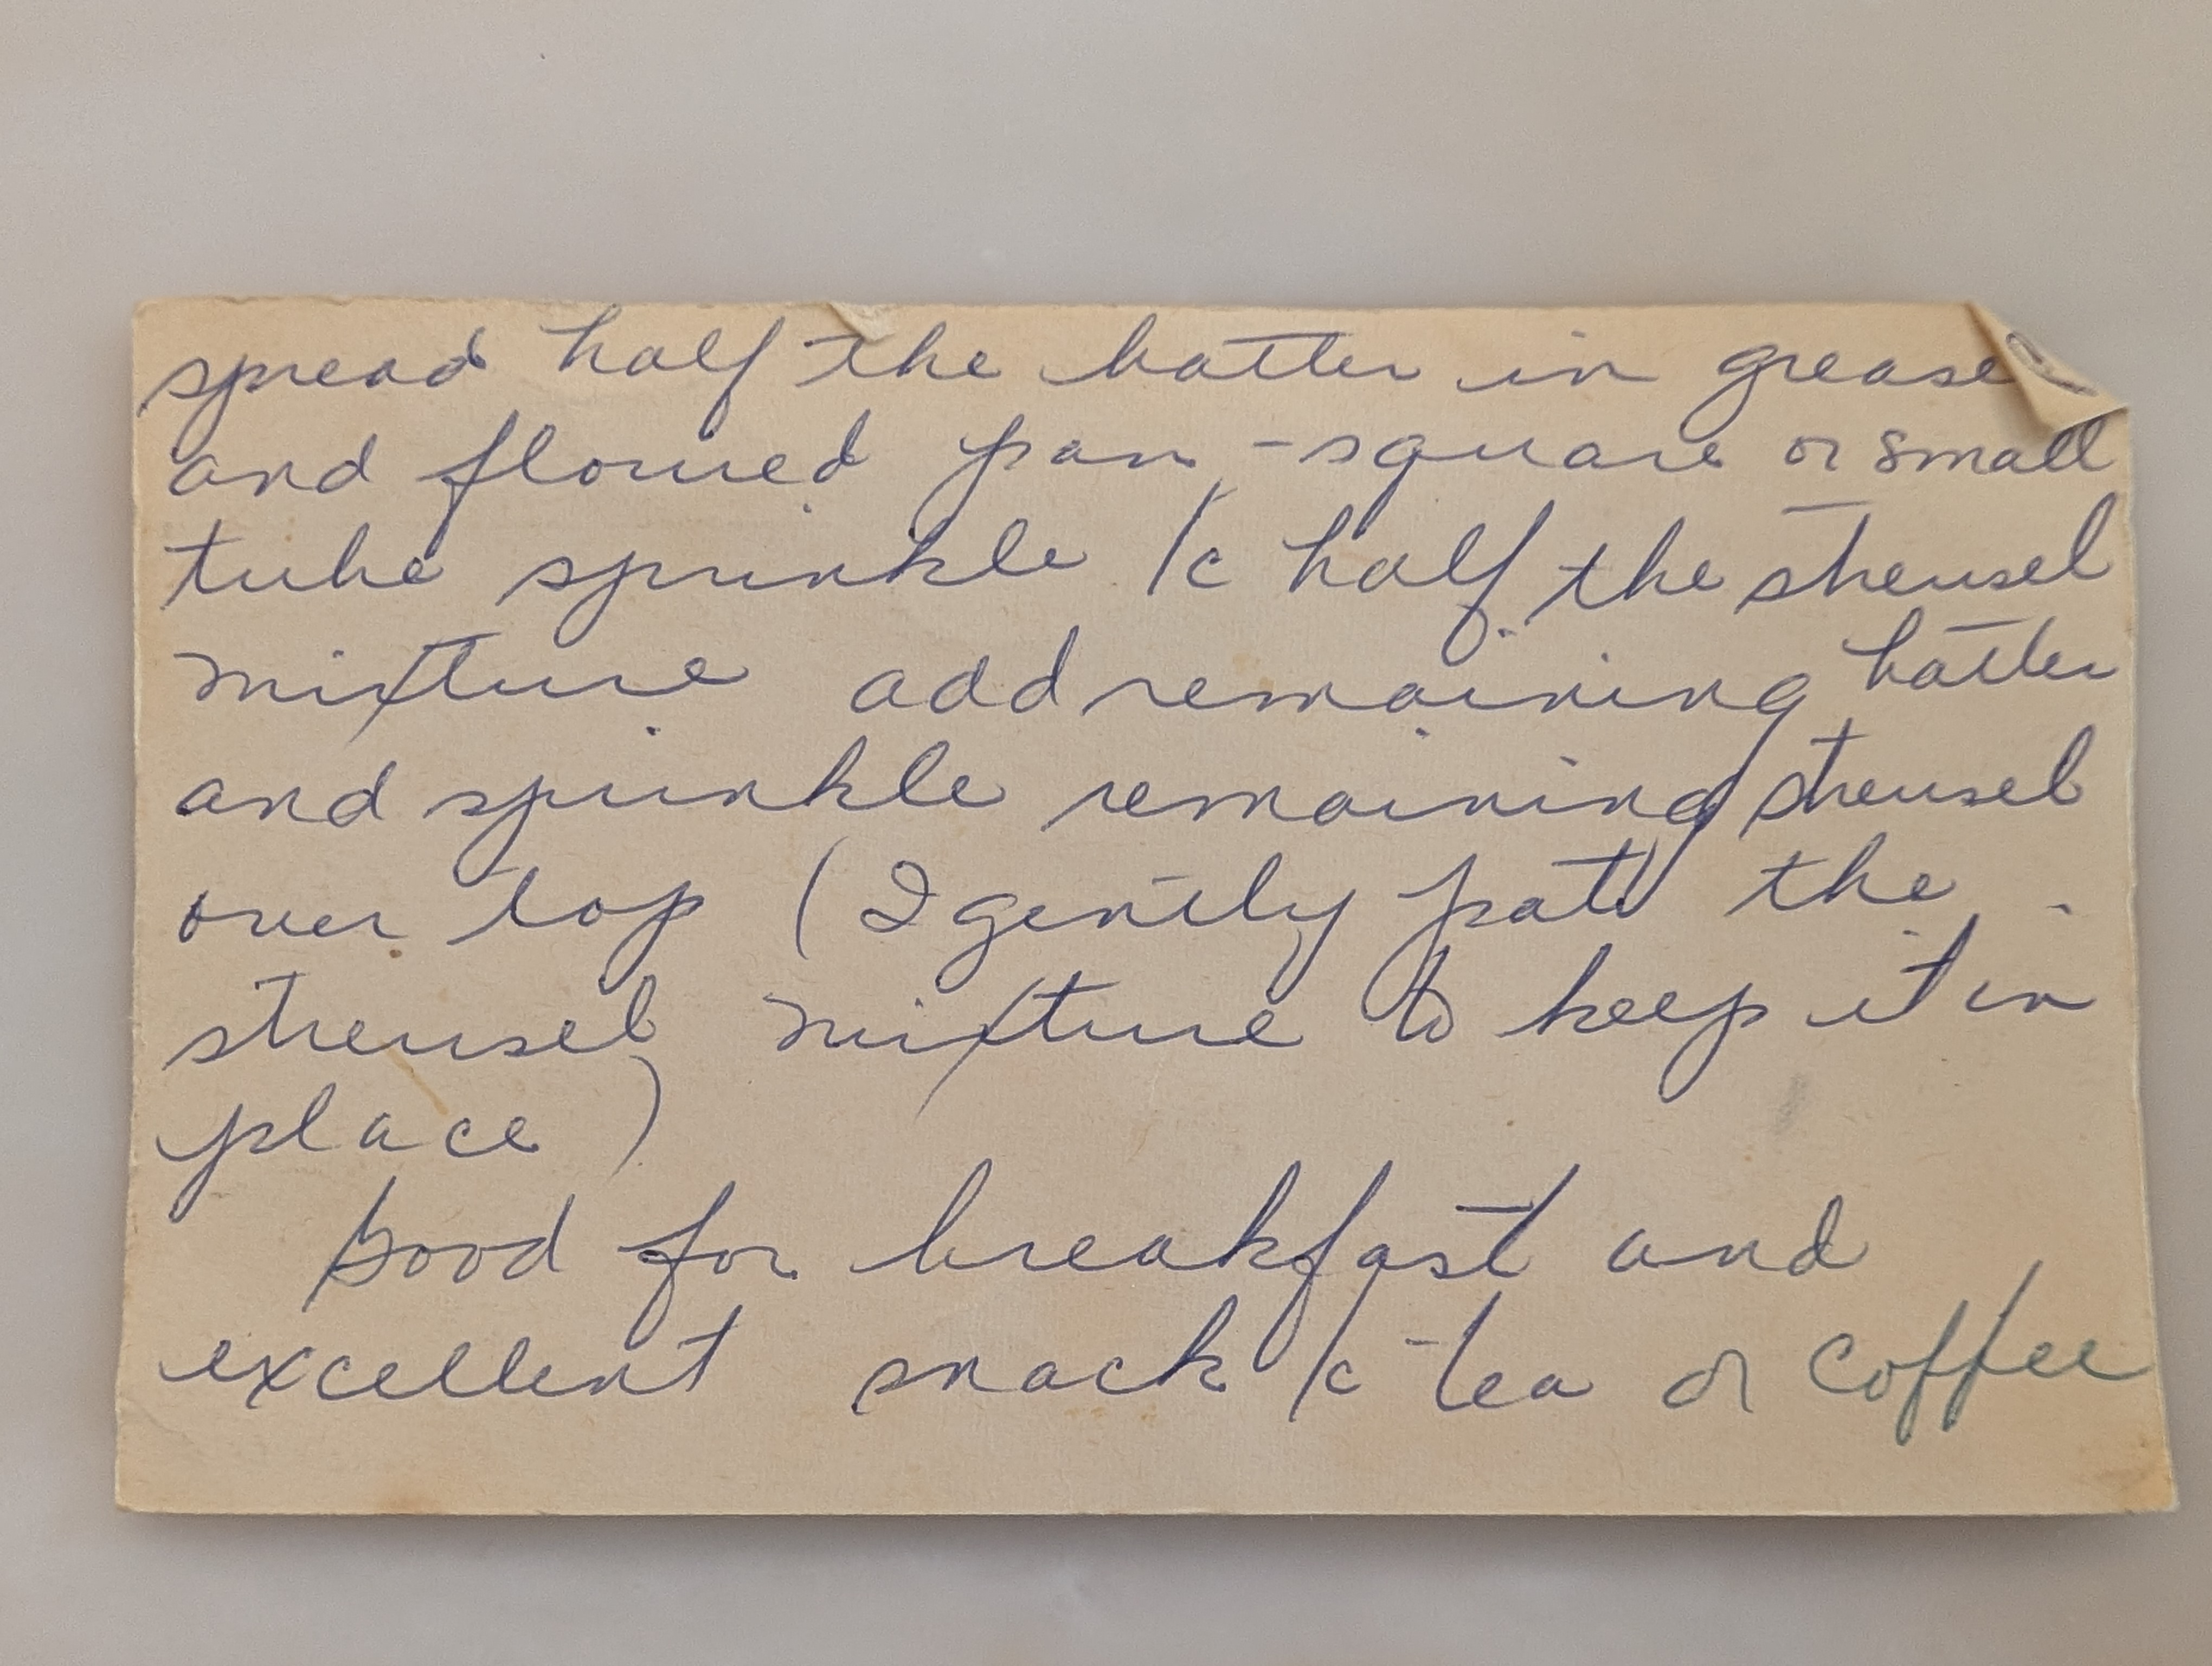 spread half the batter in greased
and floured pan - square or small
tube sprinkle /c half the streusel
mixture add remaining batter
and sprinkle remaining streusel
over top (I gently pat the
streusel mixture to keep it in
place)
Good for breakfast and
excellent snack /c tea or coffee